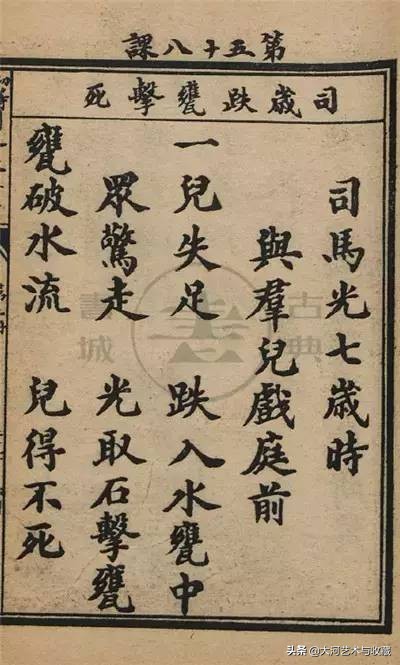 第五十八課
司歲跌甕擊死
司馬光七歲時
與羣兒戲庭前
一兒失足 跌入水甕中
眾驚走 光取石擊甕
甕破水流 兒得不死
古典書城
头条 @大河艺术与收藏